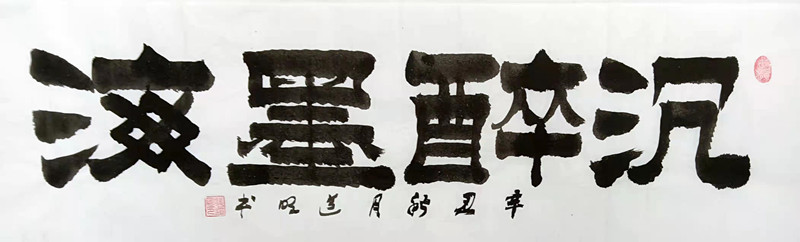 沉醉墨海
辛丑秋月道明书